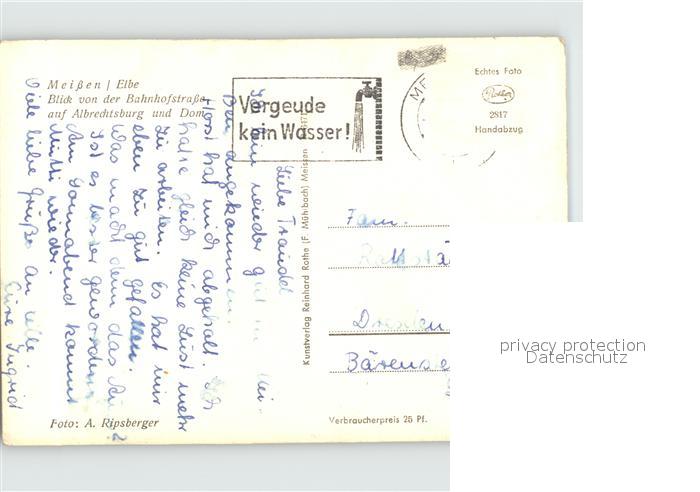 Meißen / Elbe
Blick von der Bahnhofstraße
auf Albrechtsburg und Dom
Vergeude
kein Wasser!
ME
Echtes Foto
Rothe
2817
Handabzug
Liebe Traudel
Ich bin wieder gut in Mei-
ßen angekommen.
Horst hat mich abgeholt. Ich
hatte gleich keine Lust mehr
zu arbeiten. Es hat mir
eben zu gut gefallen.
Was macht denn das
Ist es besser geworden?
Am Sonnabend kommt
Mutti wieder.
Viele liebe Grüße an alle.
Eure Ingrid
Kunstverlag Reinhard Rothe (F. Mühlbach) Meissen
Fam.
Dresden
Verbraucherpreis 25 Pf.
Foto: A. Ripsberger
privacy protection
Datenschutz